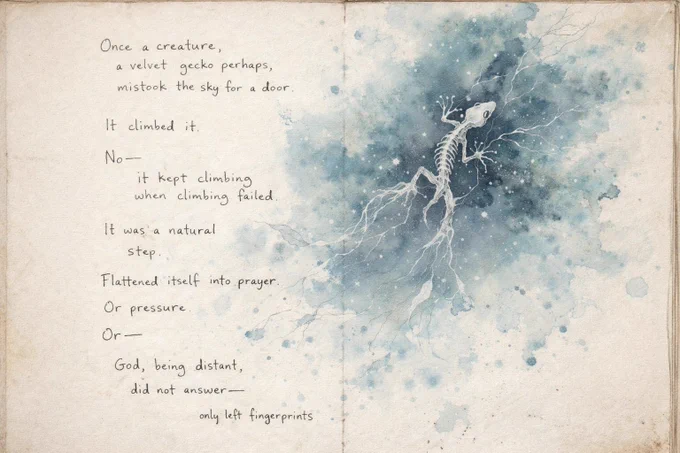 Once a creature,
a velvet gecko perhaps,
mistook the sky for a door.
It climbed it.
No—
it kept climbing
when climbing failed.
It was a natural
step.
Flattened itself into prayer.
Or pressure
Or—
God, being distant,
did not answer—
only left fingerprints